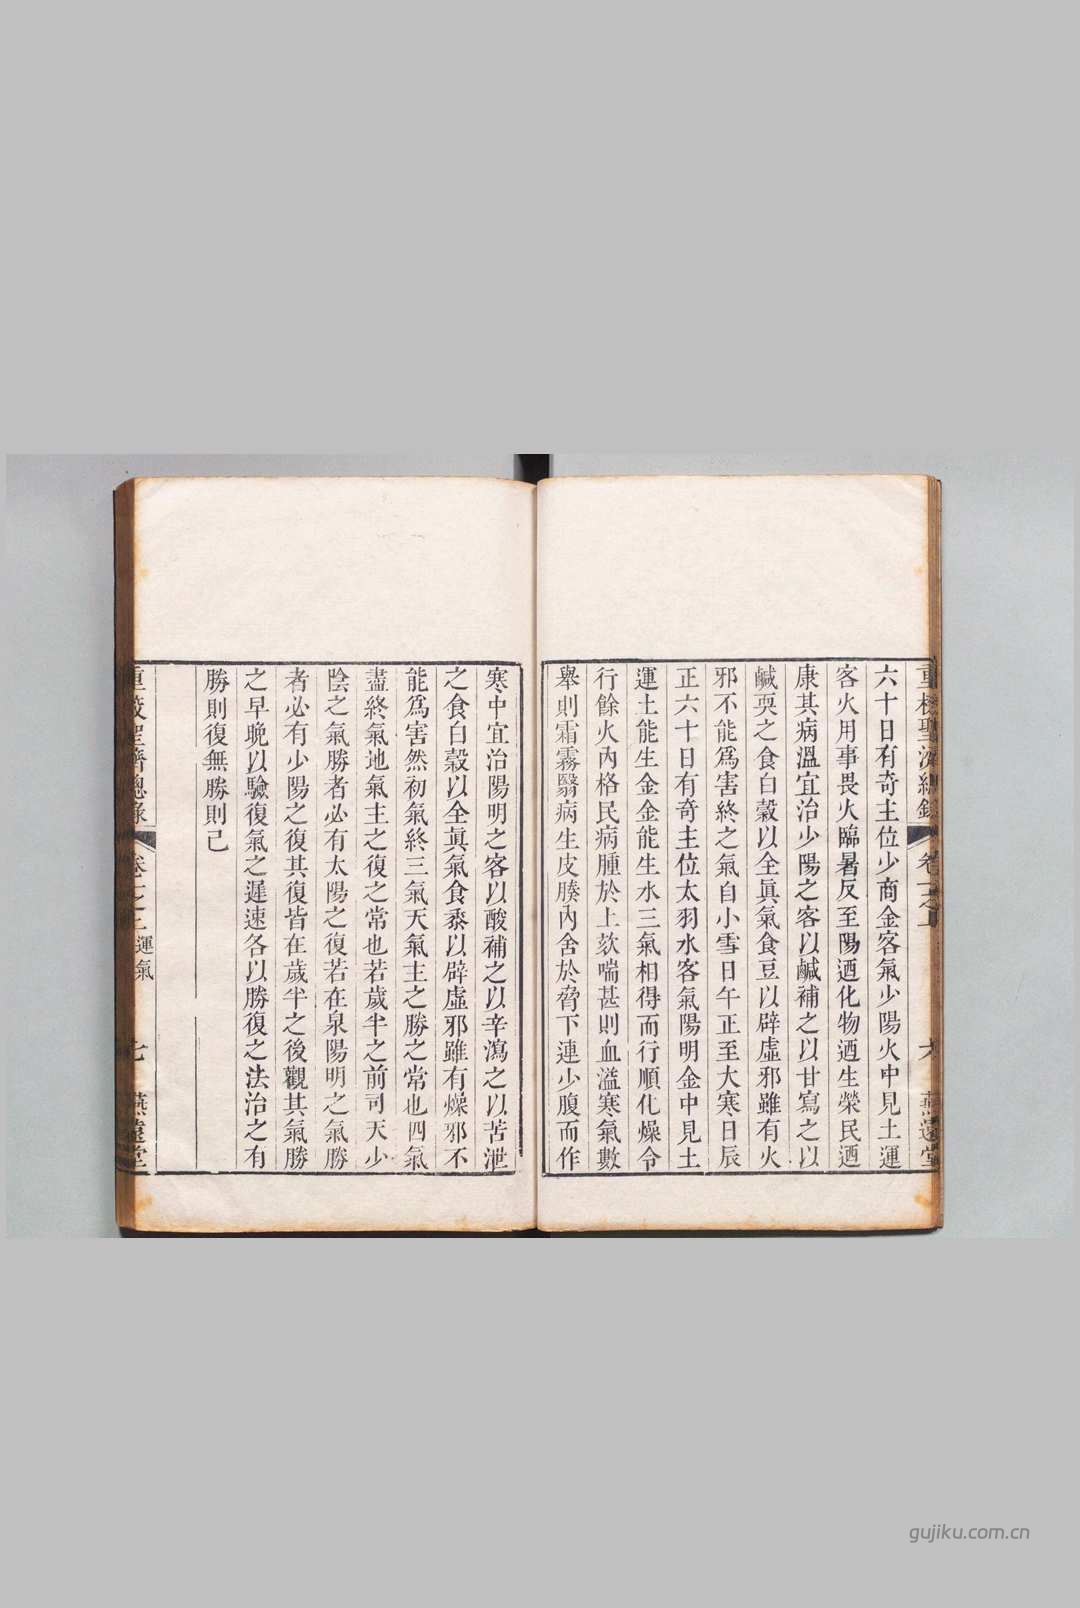 重校聖濟總錄 卷一之上 六 燕遠堂
六十日有奇主位少商金客氣少陽火中見土運
客火用事畏火臨暑反至陽迺化物迺生榮民迺
康其病溫宜治少陽之客以鹹補之以甘寫之以
鹹耎之食白穀以全眞氣食豆以辟虛邪雖有火
邪不能爲害終之氣自小雪日午正至大寒日辰
正六十日有奇主位太羽水客氣陽明金中見土
運土能生金金能生水三氣相得而行順化燥令
行餘火內格民病腫於上欬喘甚則血溢寒氣數
舉則霜霧翳病生皮腠內舍於脅下連少腹而作
寒中宜治陽明之客以酸補之以辛瀉之以苦泄
之食白穀以全眞氣食黍以辟虛邪雖有燥邪不
能爲害然初氣終三氣天氣主之勝之常也四氣
盡終氣地氣主之復之常也若歲半之前司天少
陰之氣勝者必有太陽之復若在泉陽明之氣勝
者必有少陽之復其復皆在歲半之後觀其氣勝
之早晚以驗復氣之遲速各以勝復之法治之有
勝則復無勝則已
重校聖濟總錄 卷一之上 運氣 七 燕遠堂
gujiku.com.cn